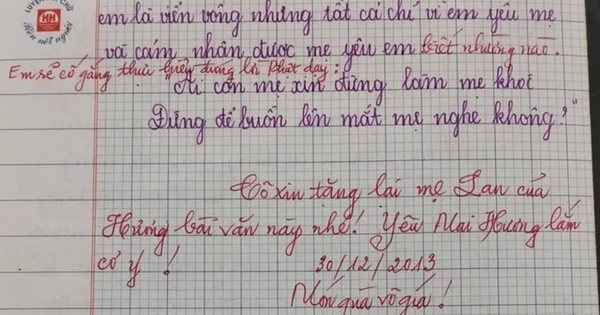 LUYỆN VIẾT CHỮ
HH
Nét nết người
em là viển vông nhưng tất cả chỉ vì em yêu mẹ
và cảm nhận được mẹ yêu em biết nhường nào.
Em sẽ cố gắng thực hiện đúng lời Phật dạy:
Ai còn mẹ xin đừng làm mẹ khóc
Đừng để buồn lên mắt mẹ nghe không?"
Cô xin tặng lại mẹ Lan của
Hương bài văn này nhé! Yêu Mai Hương lắm
cơ ý !
30/12/2013
Món quà vô giá!